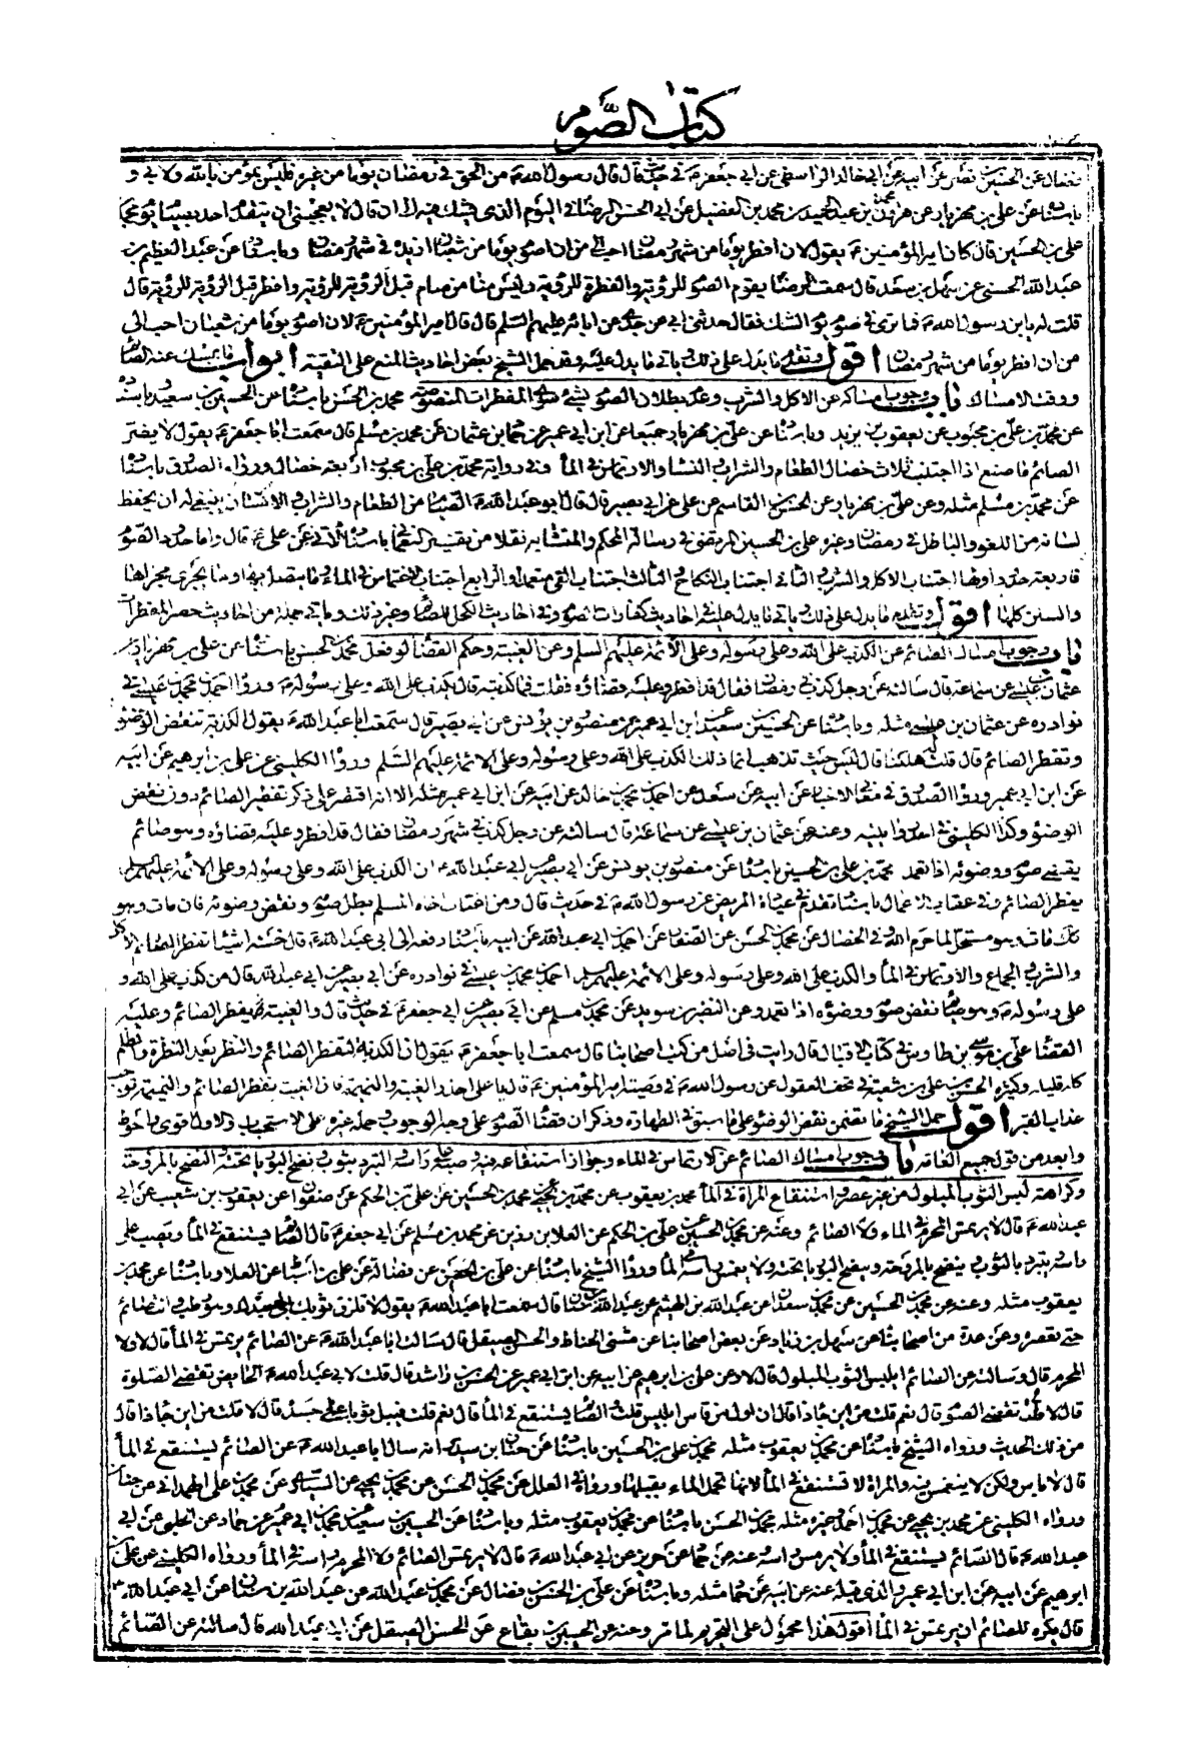 كتاب الصوم
فضال عن الحسين بن نصر عن ابيه عن ابي خالد الواسطي عن ابي جعفر ع في حديث قال قال رسول الله ص من الحق في رمضان يوما من غيره فليس بمؤمن بالله ولا بي و
باسناده عن علي بن مهزيار عن محمد بن عبد الحميد عن محمد بن الفضيل عن ابي الحسن الرضا في اليوم الذي يشك فيه قال لا يعجبني ان يتقدم احد بصيام يوم
علي بن الحسين قال كان امير المؤمنين ع يقول لان افطر يوما من شهر رمضان احب الي من ان اصوم يوما من شعبان ازيده في شهر رمضان وباسناده عن عبد العظيم بن
عبد الله الحسني عن سهل بن سعد قال سمعت الرضا يقول الصوم للرؤية والفطر للرؤية وليس منا من صام قبل الرؤية للرؤية وافطر قبل الرؤية للرؤية قال
قلت له يا بن رسول الله ص فما ترى في صوم يوم الشك فقال حدثني ابي عن جدي عن ابائه عليهم السلم قال قال امير المؤمنين ع لان اصوم يوما من شعبان احب الي
من ان افطر يوما من شهر رمضان اقول وتقدم ما يدل على ذلك وياتي ما يدل عليه وقد حمل الشيخ بعض احاديث المنع على التقية ابواب ما يمسك عنه الصائم
ووقت الامساك باب وجوب امساكه عن الاكل والشرب وعدم بطلان الصوم بشئ سوى المفطرات المنصوصة محمد بن الحسن باسناده عن الحسين بن سعيد وباسناده
عن محمد بن علي بن محبوب عن يعقوب بن يزيد وباسناده عن علي بن مهزيار جميعا عن ابن ابي عمير عن حماد بن عثمان عن محمد بن مسلم قال سمعت ابا جعفر ع يقول لا يضر
الصائم ما صنع اذا اجتنب ثلاث خصال الطعام والشراب والنساء والارتماس في الماء وفي رواية محمد بن علي بن محبوب اربعة خصال ورواه الصدوق باسناده
عن محمد بن مسلم مثله وعن علي بن مهزيار عن الحسن عن القاسم عن علي عن ابي بصير قال قال ابو عبد الله ع الصيام من الطعام والشراب والانسان ينبغي له ان يحفظ
لسانه من اللغو والباطل في رمضان وغيره علي بن الحسين المرتضى في رسالة المحكم والمتشابه نقلا من تفسير النعماني باسناده الاتي عن علي ع قال واما حدود الصوم
فاربعة حدود اولها اجتناب الاكل والشرب والثاني اجتناب النكاح والثالث اجتناب القئ متعمدا والرابع اجتناب الاغتماس في الماء وما يتصل بها وما يجري مجراها
والسنن كلها اقول وتقدم ما يدل على ذلك وياتي ما يدل عليه في احاديث كفارات الصوم وفي احاديث الكحل للصائم وغير ذلك وياتي جملة من احاديث حصر المفطرات
باب وجوب امساك الصائم عن الكذب على الله وعلى رسوله وعلى الائمة عليهم السلم وعن الغيبة وحكم القضاء لو فعل محمد بن الحسن باسناده عن علي بن مهزيار عن
عثمان بن عيسى عن سماعة قال سالته عن رجل كذب في رمضان فقال قد افطر وعليه قضاؤه فقلت فما كذبته قال يكذب على الله وعلى رسوله ص ورواه احمد بن محمد بن عيسى في
نوادره عن عثمان بن عيسى مثله وباسناده عن الحسين بن سعيد عن ابن ابي عمير عن منصور بن يونس عن ابي بصير قال سمعت ابا عبد الله ع يقول الكذبة تنقض الوضوء
وتفطر الصائم قال قلت هلكنا قال ليس حيث تذهب انما ذلك الكذب على الله وعلى رسوله وعلى الائمة عليهم السلم ورواه الكليني عن علي بن ابراهيم عن ابيه
عن ابن ابي عمير ورواه الصدوق في معاني الاخبار عن ابيه عن سعد عن احمد بن محمد بن خالد عن ابيه عن ابن ابي عمير مثله الا انه اقتصر على ذكر تفطير الصائم دون نقض
الوضوء وكذا الكليني في احدى روايتيه وعنه عن عثمان بن عيسى عن سماعة قال سالته عن رجل كذب في شهر رمضان فقال قد افطر وعليه قضاؤه وهو صائم
يقضي صومه ووضوئه اذا تعمد محمد بن علي بن الحسين باسناده عن منصور بن يونس عن ابي بصير عن ابي عبد الله ع ان الكذب على الله وعلى رسوله وعلى الائمة عليهم السلم
يفطر الصائم وفي عقاب الاعمال باسناد تقدم في عيادة المريض عن رسول الله ص في حديث قال ومن اغتاب اخاه المسلم بطل صومه ونقض وضوئه فان مات وهو
كذلك مات وهو مستحل لما حرم الله وفي الخصال عن محمد بن الحسن عن الصفار عن احمد بن ابي عبد الله عن ابيه باسناده رفعه الى ابي عبد الله ع قال خمسة اشياء تفطر الصائم الاكل
والشرب والجماع والارتماس في الماء والكذب على الله وعلى رسوله وعلى الائمة عليهم السلم احمد بن محمد بن عيسى في نوادره عن ابي بصير عن ابي عبد الله قال من كذب على الله و
على رسوله ص وهو صائم نقض صومه ووضوءه اذا تعمد وعن النضر بن سويد عن محمد بن مسلم عن ابي بصير عن ابي جعفر ع في حديث قال والغيبة يفطر الصائم وعليه
القضاء علي بن موسى بن طاوس في كتاب الاقبال قال رايت في اصل من كتب اصحابنا قال سمعت ابا جعفر ع يقول ان الكذبة لتفطر الصائم والنظر بعد النظرة والظلم
كله قليله وكثيره الحسن بن علي بن شعبة في تحف العقول عن رسول الله ص في وصيته لامير المؤمنين ع قال يا علي احذر الغيبة والنميمة فان الغيبة يفطر الصائم والنميمة توجب
عذاب القبر اقول حمل الشيخ ما تضمن نقض الوضوء على ما سبق في الطهارة وذكر ان قضاء الصوم على وجه الوجوب وحمله غيره على الاستحباب والاول اقوى واحوط
وابعد من قول جميع العامة باب وجوب امساك الصائم عن الارتماس في الماء وجواز استنقاعه فيه وصبه على راسه والتبرد بثوب ونضح البوريا تحته والنضح بالمروحة
وكراهة لبس الثوب المبلول من غير عصر واستنقاع المراة في الماء محمد بن يعقوب عن محمد بن يحيى عن محمد بن الحسين عن علي بن الحكم عن صفوان عن يعقوب بن شعيب عن ابي
عبد الله ع قال لا يرتمس المحرم في الماء ولا الصائم وعنه عن محمد بن الحسين عن علي بن الحكم عن العلا بن رزين عن محمد بن مسلم عن ابي جعفر ع قال الصائم يستنقع في الماء ويصب على
راسه ويتبرد بالثوب وينضح بالمروحة وينضح البوريا تحته ولا يغمس راسه في الماء ورواه الشيخ باسناده عن علي بن الحسن عن فضالة عن علي بن اسباط عن العلا وباسناده عن محمد بن
يعقوب مثله وعنه عن محمد بن الحسين عن محمد بن سعدان عن عبد الله بن الهيثم عن عبد الله بن سنان قال سمعت ابا عبد الله ع يقول لا تلزق ثوبك الى جسدك وهو رطب وانت صائم
حتى تعصره وعن عدة من اصحابنا عن سهل بن زياد عن بعض اصحابنا عن مثنى الحناط والحسن الصيقل قال سالت ابا عبد الله ع عن الصائم يرتمس في الماء قال لا ولا
المحرم قال وسالته عن الصائم ايلبس الثوب المبلول قال لا وعن علي بن ابراهيم عن ابيه عن ابن ابي عمير عن الحسن بن راشد قال قلت لابي عبد الله ع الحائض تقضي الصلوة
قال لا قلت تقضي الصوم قال نعم قلت من اين جاء ذا قال ان اول من قاس ابليس قلت الصائم يستنقع في الماء قال نعم قلت فيبل ثوبا على جسده قال لا قلت من اين جاء ذا قال
من ذلك الحديث ورواه الشيخ باسناده عن محمد بن يعقوب مثله محمد بن علي بن الحسين باسناده عن حنان بن سدير انه سال ابا عبد الله ع عن الصائم يستنقع في الماء
قال لا باس ولكن لا ينغمس فيه والمراة لا تستنقع في الماء لانها تحمل الماء بقبلها ورواه في العلل عن محمد بن الحسن عن محمد بن يحيى عن السياري عن محمد بن علي الهمداني عن حنان
ورواه الكليني عن محمد بن يحيى عن محمد بن احمد عن غيره مثله محمد بن الحسن باسناده عن محمد بن يعقوب مثله وباسناده عن الحسين بن سعيد عن محمد بن ابي عمير عن حماد عن الحلبي عن ابي
عبد الله ع قال الصائم يستنقع في الماء ولا يرمس راسه وعنه عن حماد عن حريز عن ابي عبد الله ع قال لا يرتمس الصائم ولا المحرم راسه في الماء ورواه الكليني عن علي بن
ابراهيم عن ابيه عن ابن ابي عمير والذي قبله عنه عن ابيه عن حماد مثله وباسناده عن علي بن الحسن بن فضال عن محمد بن عبد الله عن عبد الله بن سنان عن ابي عبد الله ع
قال يكره للصائم ان يرتمس في الماء اقول هذا محمول على التحريم لما مر وعنه عن الحسين بن بقاح عن الحسن الصيقل عن ابي عبد الله قال سالته عن الصائم